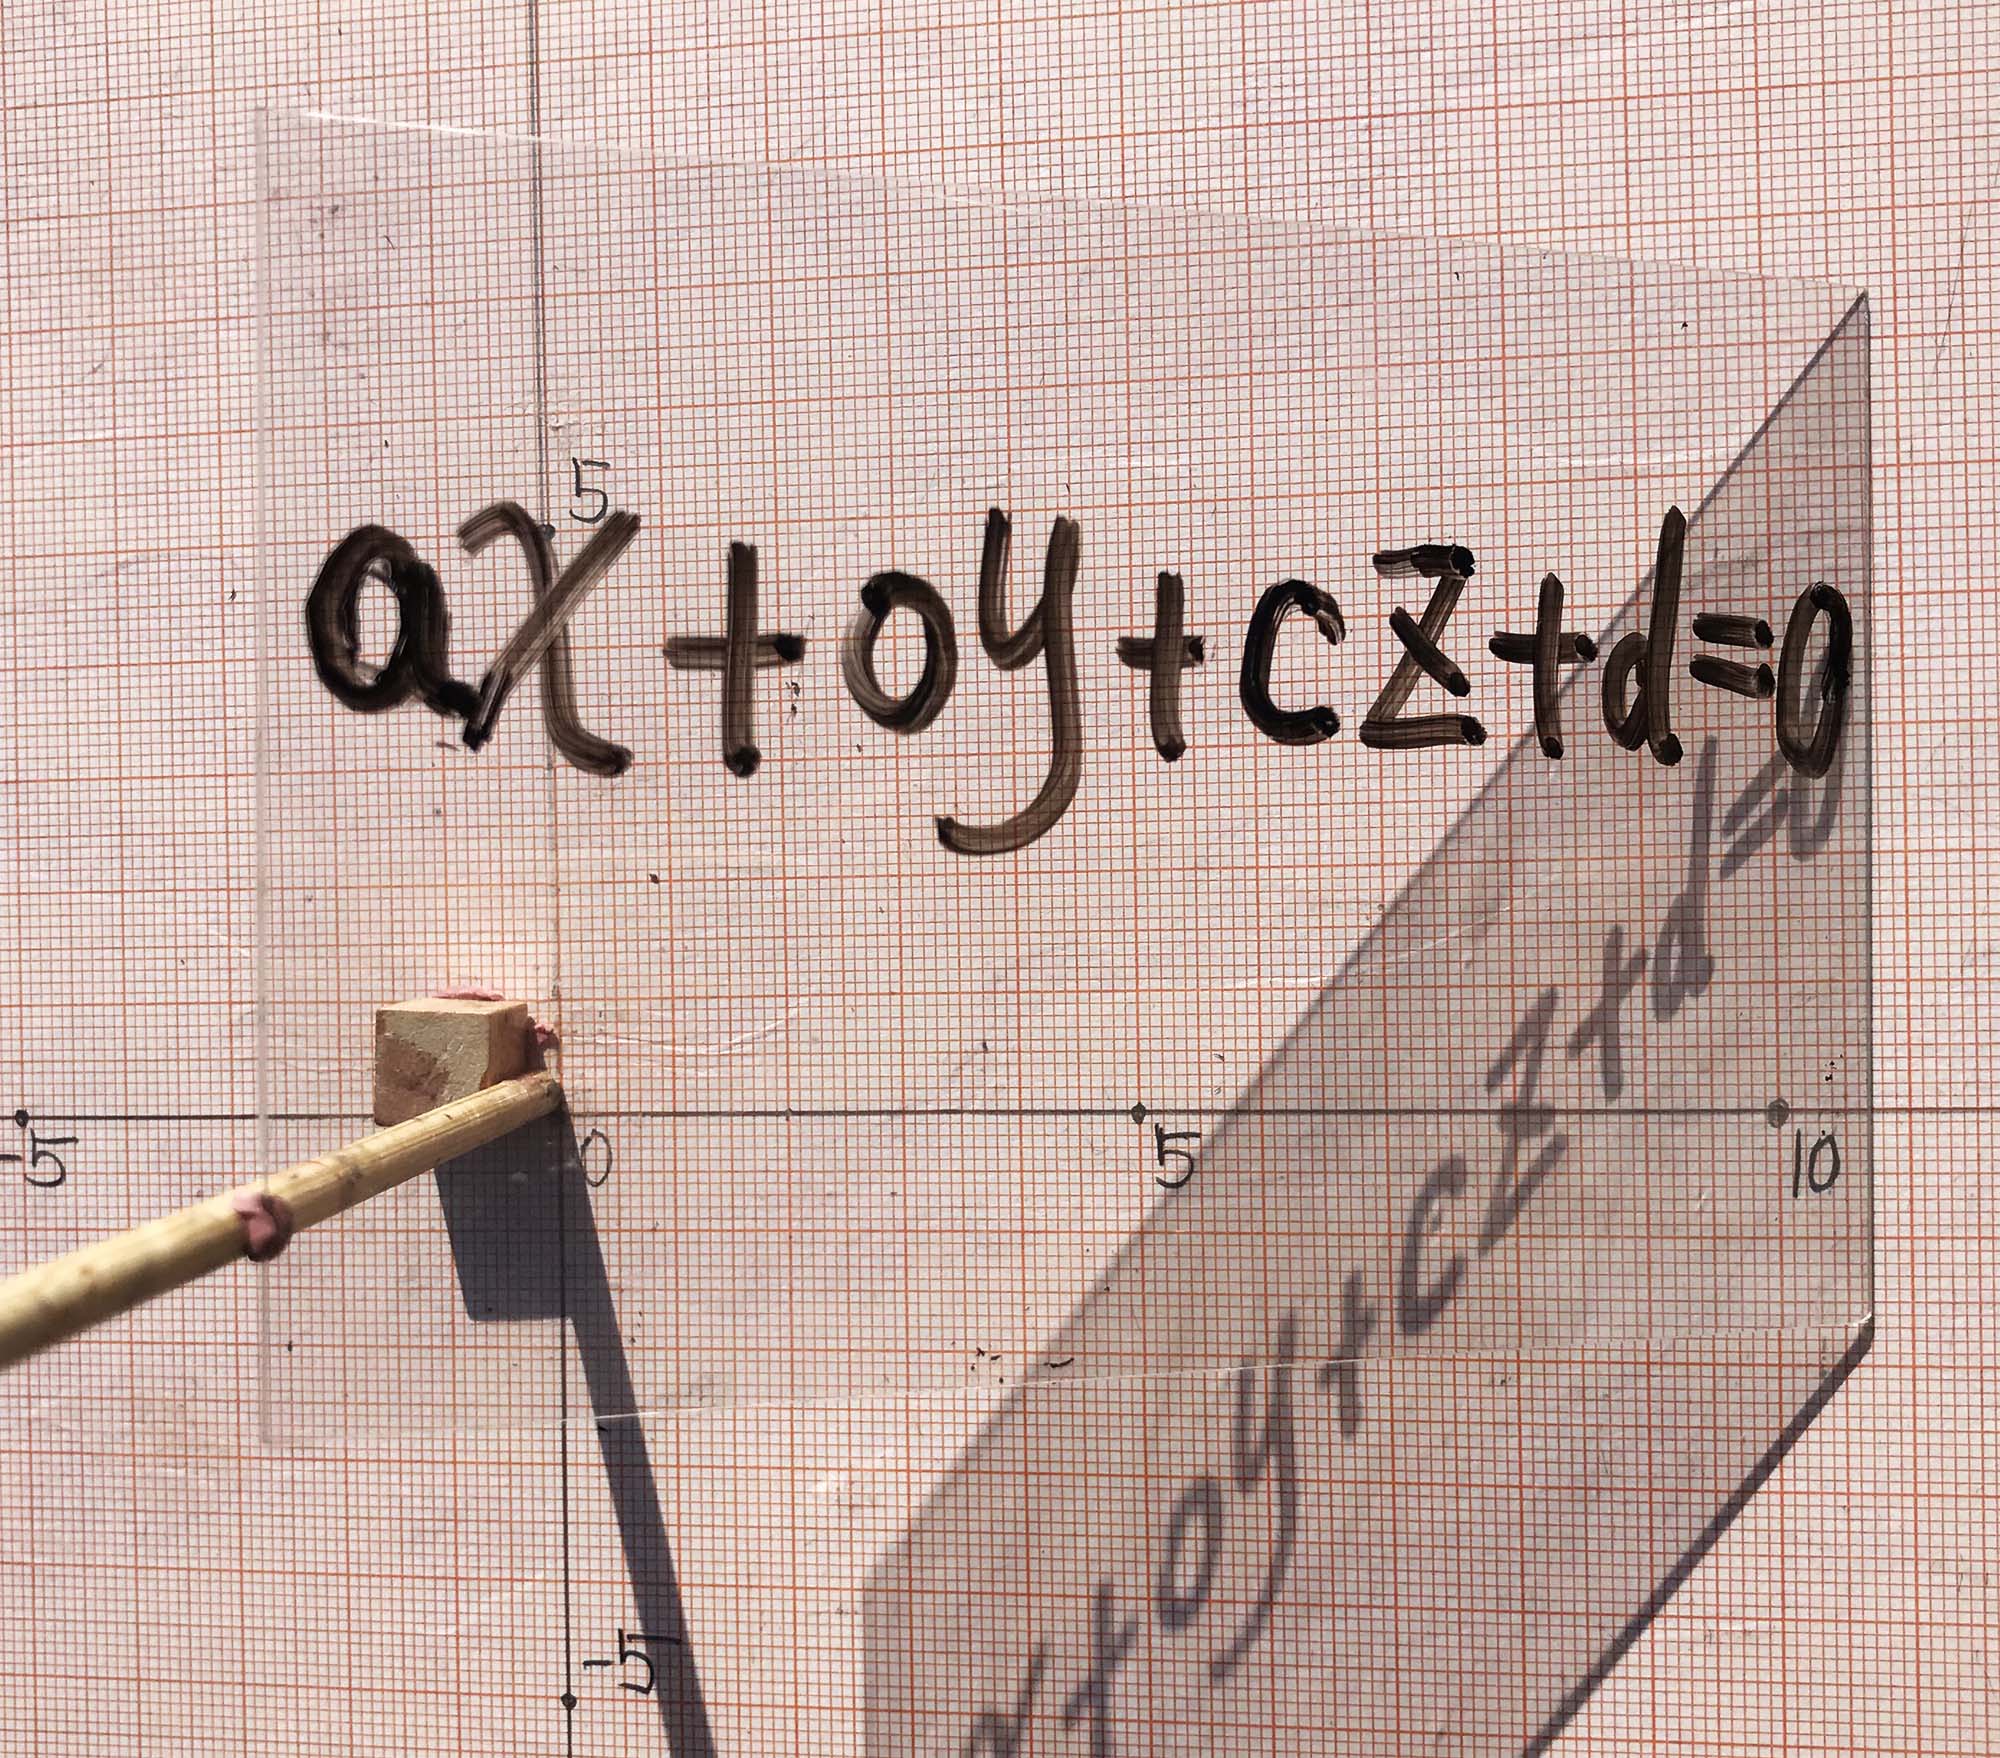 5
ax+oy+cz+d=0
-5
0
5
10
-5
x+oy+cz+d=0